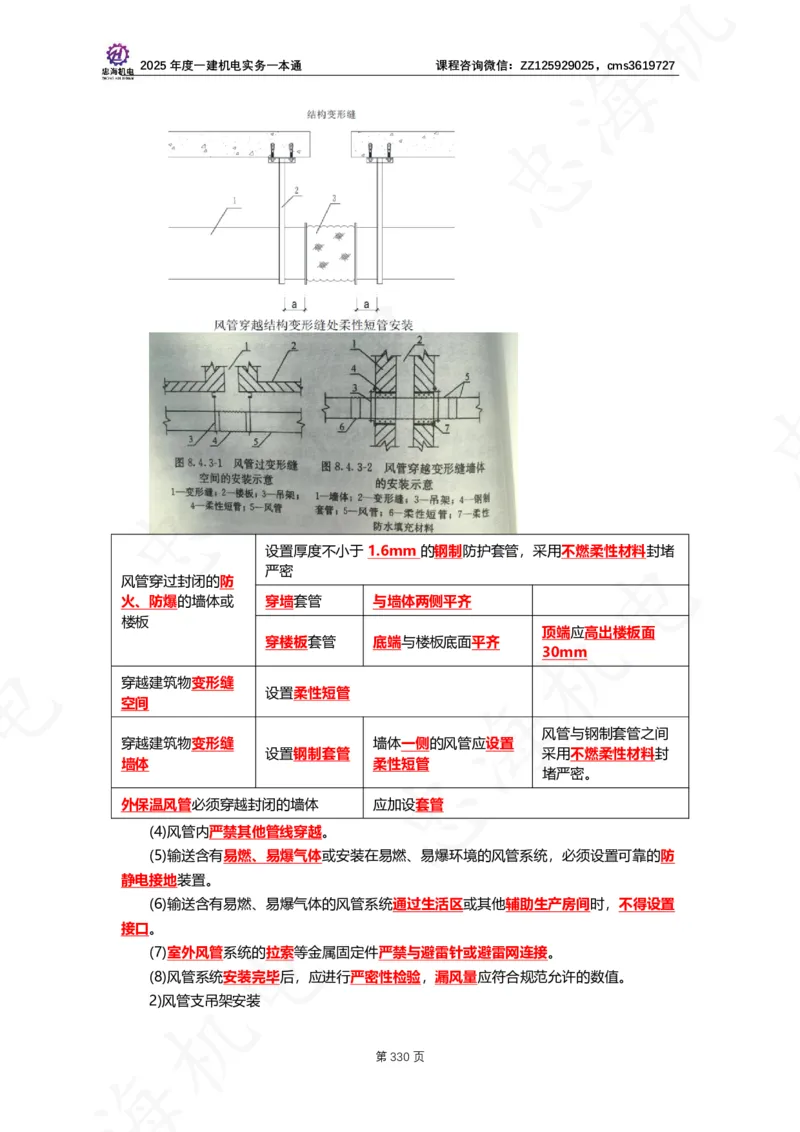 忠海机电
2025 年度一建机电实务一本通
课程咨询微信：ZZ125929025，cms3619727
结构变形缝
1
2
3
a
a
风管穿越结构变形缝处柔性短管安装
1
2
3
4
5
1
2
4
3
5
6
7
图 8.4.3-1 风管过变形缝
空间的安装示意
1—变形缝；2—楼板；3—吊架；
4—柔性短管；5—风管
图 8.4.3-2 风管穿越变形缝墙体
的安装示意
1—墙体；2—变形缝；3—吊架；4—钢制
套管；5—风管；6—柔性短管；7—柔性
防水填充材料
风管穿过封闭的防
火、防爆的墙体或
楼板
设置厚度不小于 1.6mm 的钢制防护套管，采用不燃柔性材料封堵
严密
穿墙套管
与墙体两侧平齐
穿楼板套管
底端与楼板底面平齐
顶端应高出楼板面
30mm
穿越建筑物变形缝
空间
设置柔性短管
穿越建筑物变形缝
墙体
设置钢制套管
墙体一侧的风管应设置
柔性短管
风管与钢制套管之间
采用不燃柔性材料封
堵严密。
外保温风管必须穿越封闭的墙体
应加设套管
(4)风管内严禁其他管线穿越。
(5)输送含有易燃、易爆气体或安装在易燃、易爆环境的风管系统，必须设置可靠的防
静电接地装置。
(6)输送含有易燃、易爆气体的风管系统通过生活区或其他辅助生产房间时，不得设置
接口。
(7)室外风管系统的拉索等金属固定件严禁与避雷针或避雷网连接。
(8)风管系统安装完毕后，应进行严密性检验，漏风量应符合规范允许的数值。
2)风管支吊架安装
第 330 页